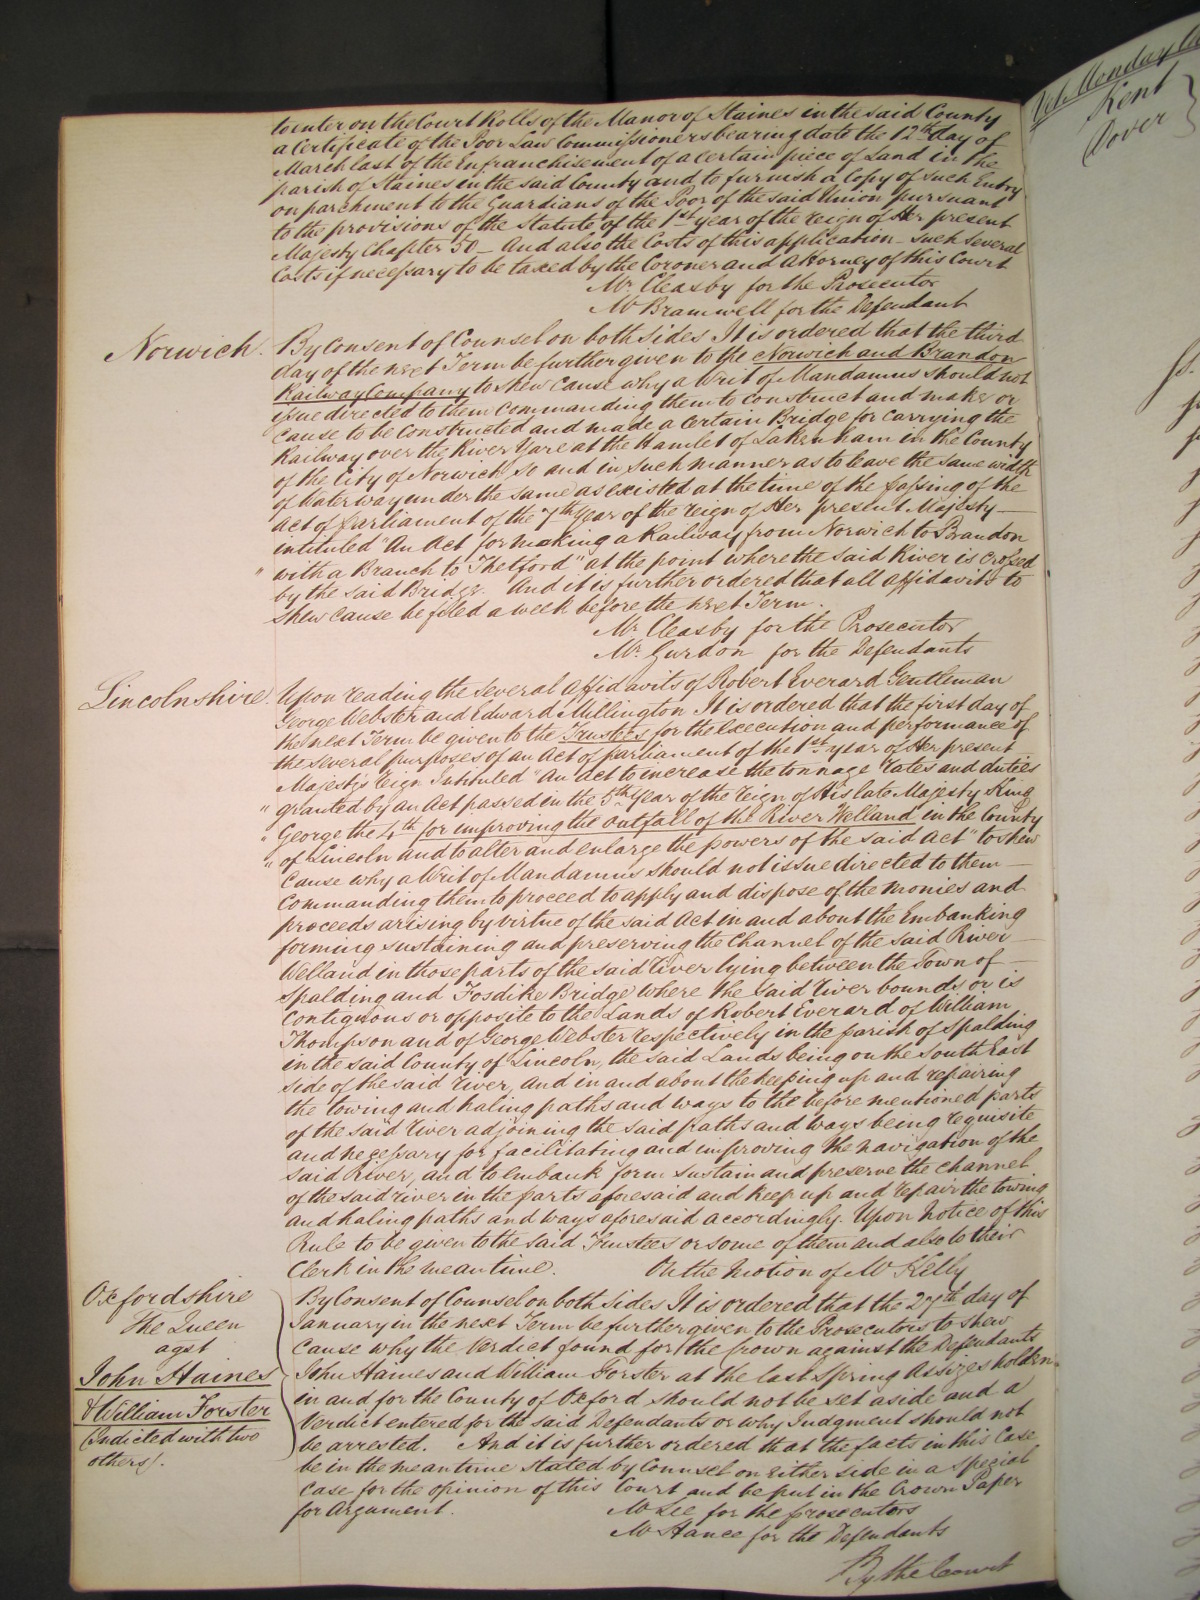 to enter on the Court Rolls of the Manor of Staines in the said County
a Certificate of the Poor Law Commissioners bearing date the 12th day of
March last of the Enfranchisement of a certain piece of Land in the
parish of Staines in the said County and to furnish a Copy of such Entry
on parchment to the Guardians of the Poor of the said Union pursuant
to the provisions of the Statute of the 1st year of the reign of Her present
Majesty Chapter 50 – And also the Costs of this application – such several
Costs if necessary to be taxed by the Coroner and Attorney of this Court
Mr. Cleasby for the Prosecutor
Mr Bramwell for the Defendant
Norwich. By Consent of Counsel on both sides It is ordered that the third
day of the next Term be further given to the Norwich and Brandon
Railway Company to shew cause why a Writ of Mandamus should not
issue directed to them commanding them to construct and make or
cause to be constructed and made a certain Bridge for carrying the
Railway over the River Yare at the Hamlet of Lakenham in the County
of the City of Norwich so and in such manner as to leave the same width
of Waterway under the same as existed at the time of the passing of the
Act of parliament of the 7th Year of the reign of Her present Majesty —
intituled "An Act for making a Railway from Norwich to Brandon
" with a Branch to Thetford" at the point where the said River is crossed
by the said Bridge. And it is further ordered that all affidavits to
shew cause be filed a week before the next Term.
Mr. Cleasby for the Prosecutor
Mr. Gurdon for the Defendants
Lincolnshire. Upon reading the several affidavits of Robert Everard Gentleman
George Webster and Edward Millington It is ordered that the first day of
the next Term be given to the Trustees for the execution and performance of
the several purposes of an Act of parliament of the 1st year of Her present
Majesty's reign Intituled "An Act to increase the tonnage rates and duties
" granted by an Act passed in the 5th Year of the reign of His late Majesty King
" George the 4th for improving the outfall of the River Welland in the County
" of Lincoln and to alter and enlarge the powers of the said Act" to shew
Cause why a Writ of Mandamus should not issue directed to them —
Commanding them to proceed to apply and dispose of the monies and
proceeds arising by virtue of the said Act in and about the Embanking
forming sustaining and preserving the Channel of the said River —
Welland in those parts of the said river lying between the Town of —
Spalding and Fosdike Bridge where the said river bounds or is
contiguous or opposite to the Lands of Robert Everard of William
Thompson and of George Webster respectively in the parish of Spalding
in the said County of Lincoln, the said Lands being on the South East
side of the said river, and in and about the keeping up and repairing
the towing and haling paths and ways to the before mentioned parts
of the said river adjoining the said paths and ways being requisite
and necessary for facilitating and improving the navigation of the
said River, and to embank form sustain and preserve the channel
of the said river in the parts aforesaid and keep up and repair the towing
and haling paths and ways aforesaid accordingly. Upon Notice of this
Rule to be given to the said Trustees or some of them and also to their
Clerk in the meantime. On the Motion of Mr Kelly
Oxfordshire
The Queen
agst
John Haines
& William Forster
(Indicted with two
others).
By Consent of Counsel on both sides It is ordered that the 27th day of
January in the next Term be further given to the Prosecutors to shew
cause why the Verdict found for the Crown against the Defendants
John Haines and William Forster at the last Spring Assizes holden
in and for the County of Oxford should not be set aside and a
Verdict entered for the said Defendants or why Judgment should not
be arrested. And it is further ordered that the facts in this Case
be in the meantime stated by Counsel on either side in a special
Case for the opinion of this Court and be put in the Crown Paper
for Argument.
Mr Lee for the prosecutors
Mr Hance for the Defendants
By the Court
Kent
Dover